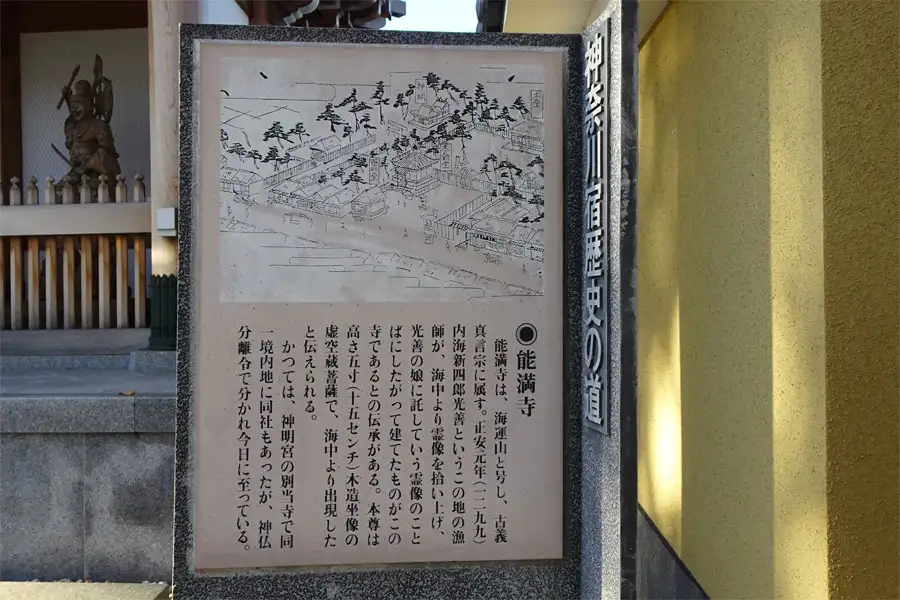 神奈川宿歴史の道
能満寺
能満寺は、海運山と号し、古義
真言宗に属す。正安元年(一二九九)
内海新四郎光善というこの地の漁
師が、海中より霊像を拾い上げ、
光善の娘に託していう霊像のこと
ばにしたがって建てたものがこの
寺であるとの伝承がある。本尊は
高さ五寸(十五センチ)木造坐像の
虚空蔵菩薩で、海中より出現した
と伝えられる。
かつては、神明宮の別当寺で同
一境内地に同社もあったが、神仏
分離令で分かれ今日に至っている。